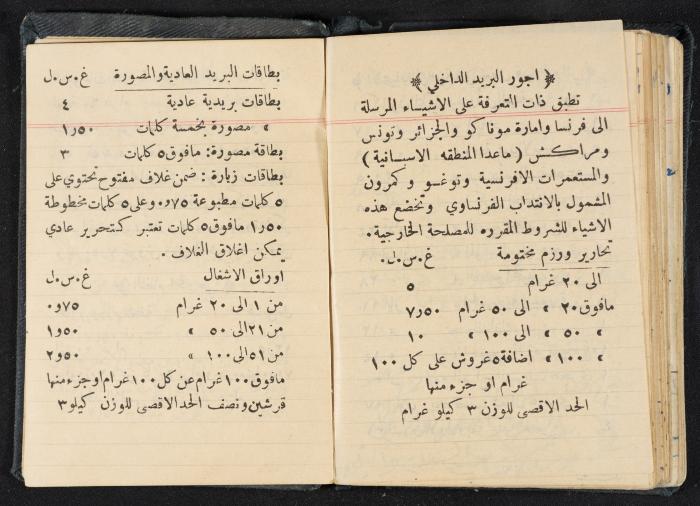 ﴿ اجور البريد الداخلي ﴾
تطبق ذات التعرفة على الاشياء المرسلة
الى فرنسا وامارة موناكو والجزائر وتونس
ومراكش ( ماعدا المنطقه الاسبانية )
والمستعمرات الافرنسية وتوغو وكمرون
المشمول بالانتداب الفرنساوي وتخضع هذه
الاشياء للشروط المقرره للمصلحة الخارجية .
تحارير ورزم مختومة غ.س.ل.
الى ٢٠ غرام ٥
مافوق ٢٠ » الى ٥٠ غرام ٧٫٥٠
» ٥٠ » الى ١٠٠ » ١٠
» ١٠٠ » اضافة ٥ غروش على كل ١٠٠
غرام او جزء منها
الحد الاقصى للوزن ٣ كيلو غرام
بطاقات البريد العادية والمصورة غ.س.ل
بطاقات بريدية عادية ٤
» مصورة بخمسة كلمات ١٫٥٠
بطاقة مصورة: مافوق ٥ كلمات ٣
بطاقات زيارة : ضمن غلاف مفتوح تحتوي على
٥ كلمات مطبوعة ٠٫٧٥ وعلى ٥ كلمات مخطوطة
١٫٥٠ مافوق ٥ كلمات تعتبر كتحرير عادي
يمكن اغلاق الغلاف .
اوراق الاشغال غ.س.ل
من ١ الى ٢٠ غرام ٠٫٧٥
من ٢١ الى ٥٠ » ١٫٥٠
من ٥١ الى ١٠٠ » ٢٫٥٠
مافوق ١٠٠ غرام عن كل ١٠٠ غرام او جزء منها
قرشين ونصف الحد الاقصى للوزن كيلو ٣